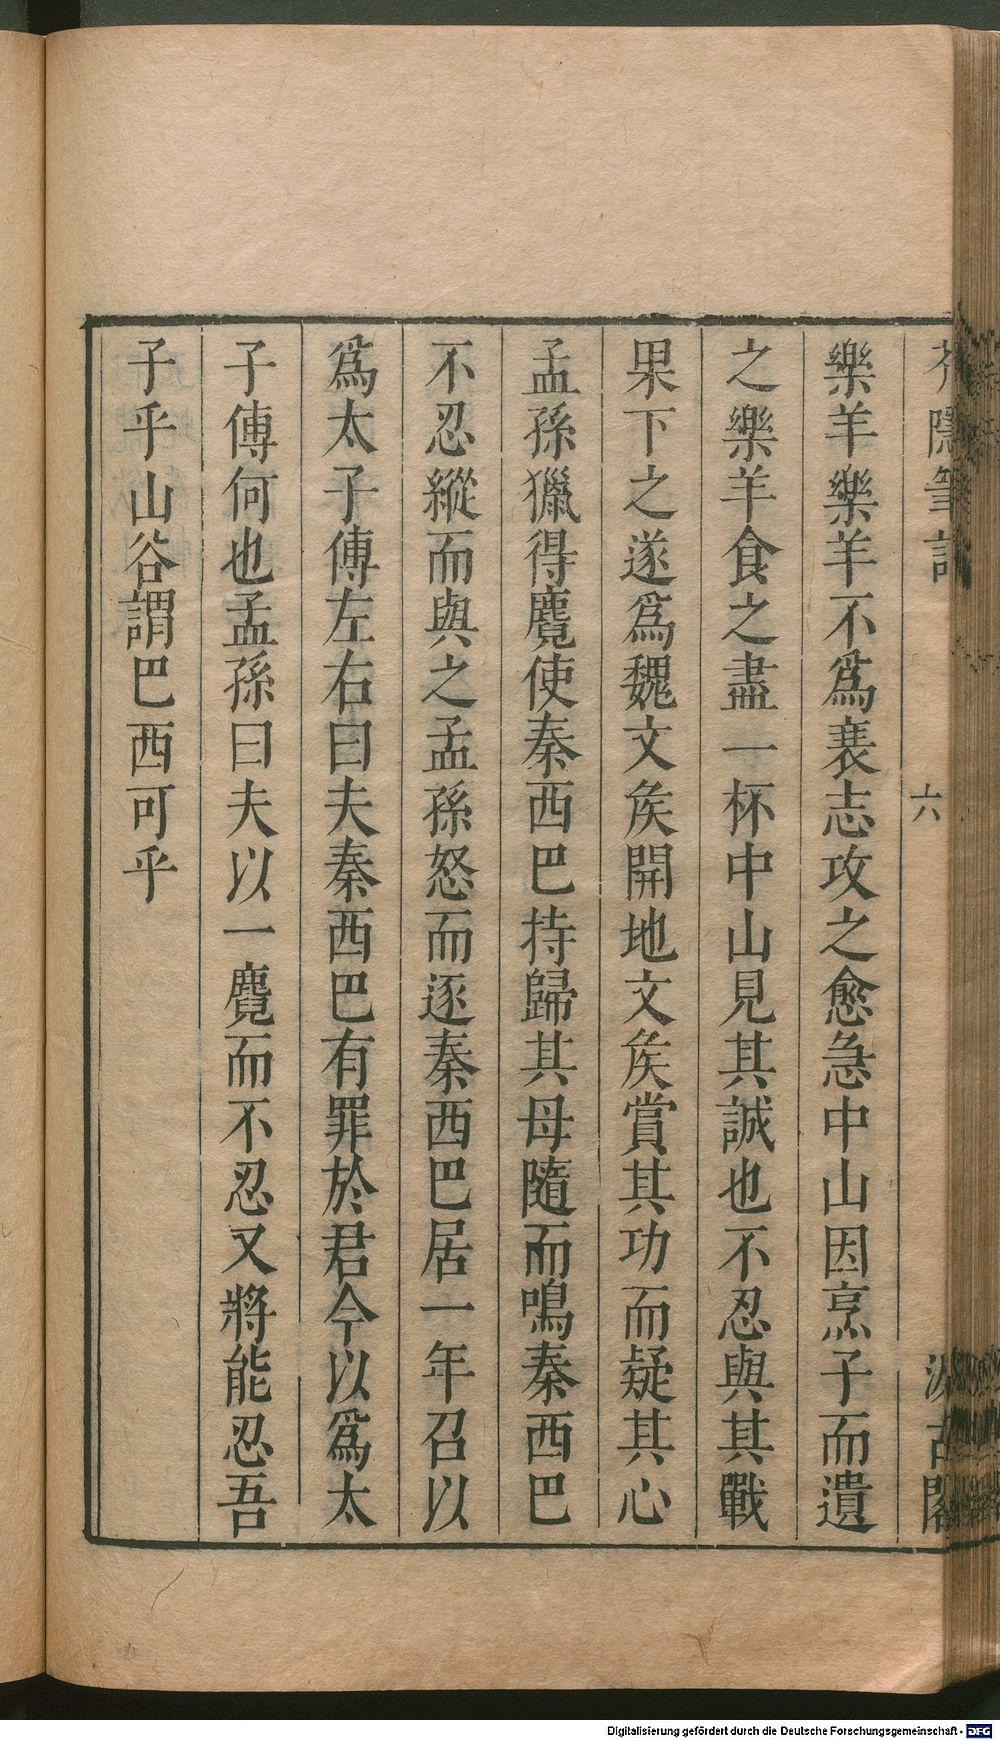 芥隱筆記
六
汲古閣
樂羊樂羊不爲衰志攻之愈急中山因烹子而遺
之樂羊食之盡一杯中山見其誠也不忍與其戰
果下之遂爲魏文矦開地文矦賞其功而疑其心
孟孫獵得麑使秦西巴持歸其母隨而鳴秦西巴
不忍縱而與之孟孫怒而逐秦西巴居一年召以
爲太子傅左右曰夫秦西巴有罪於君今以爲太
子傅何也孟孫曰夫以一麑而不忍又將能忍吾
子乎山谷謂巴西可乎
Digitalisierung gefördert durch die Deutsche Forschungsgemeinschaft - DFG